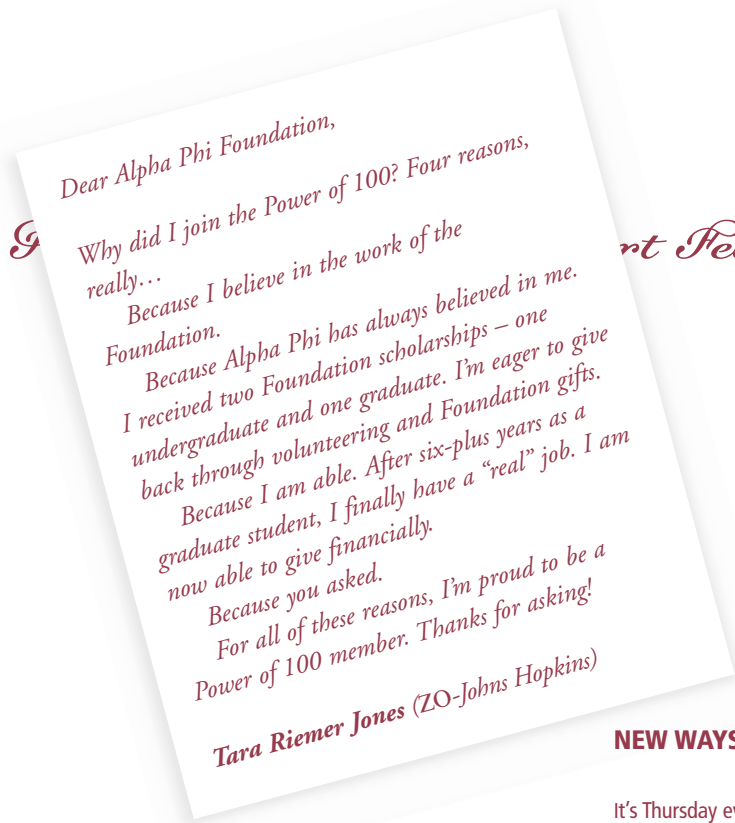 Dear Alpha Phi Foundation,
Why did I join the Power of 100? Four reasons,
really…
Because I believe in the work of the
Foundation.
Because Alpha Phi has always believed in me.
I received two Foundation scholarships – one
undergraduate and one graduate. I’m eager to give
back through volunteering and Foundation gifts.
Because I am able. After six-plus years as a
graduate student, I finally have a “real” job. I am
now able to give financially.
Because you asked.
For all of these reasons, I’m proud to be a
Power of 100 member. Thanks for asking!
Tara Riemer Jones (ZO-Johns Hopkins)
rt Fe
NEW WAYS
It’s Thursday ev